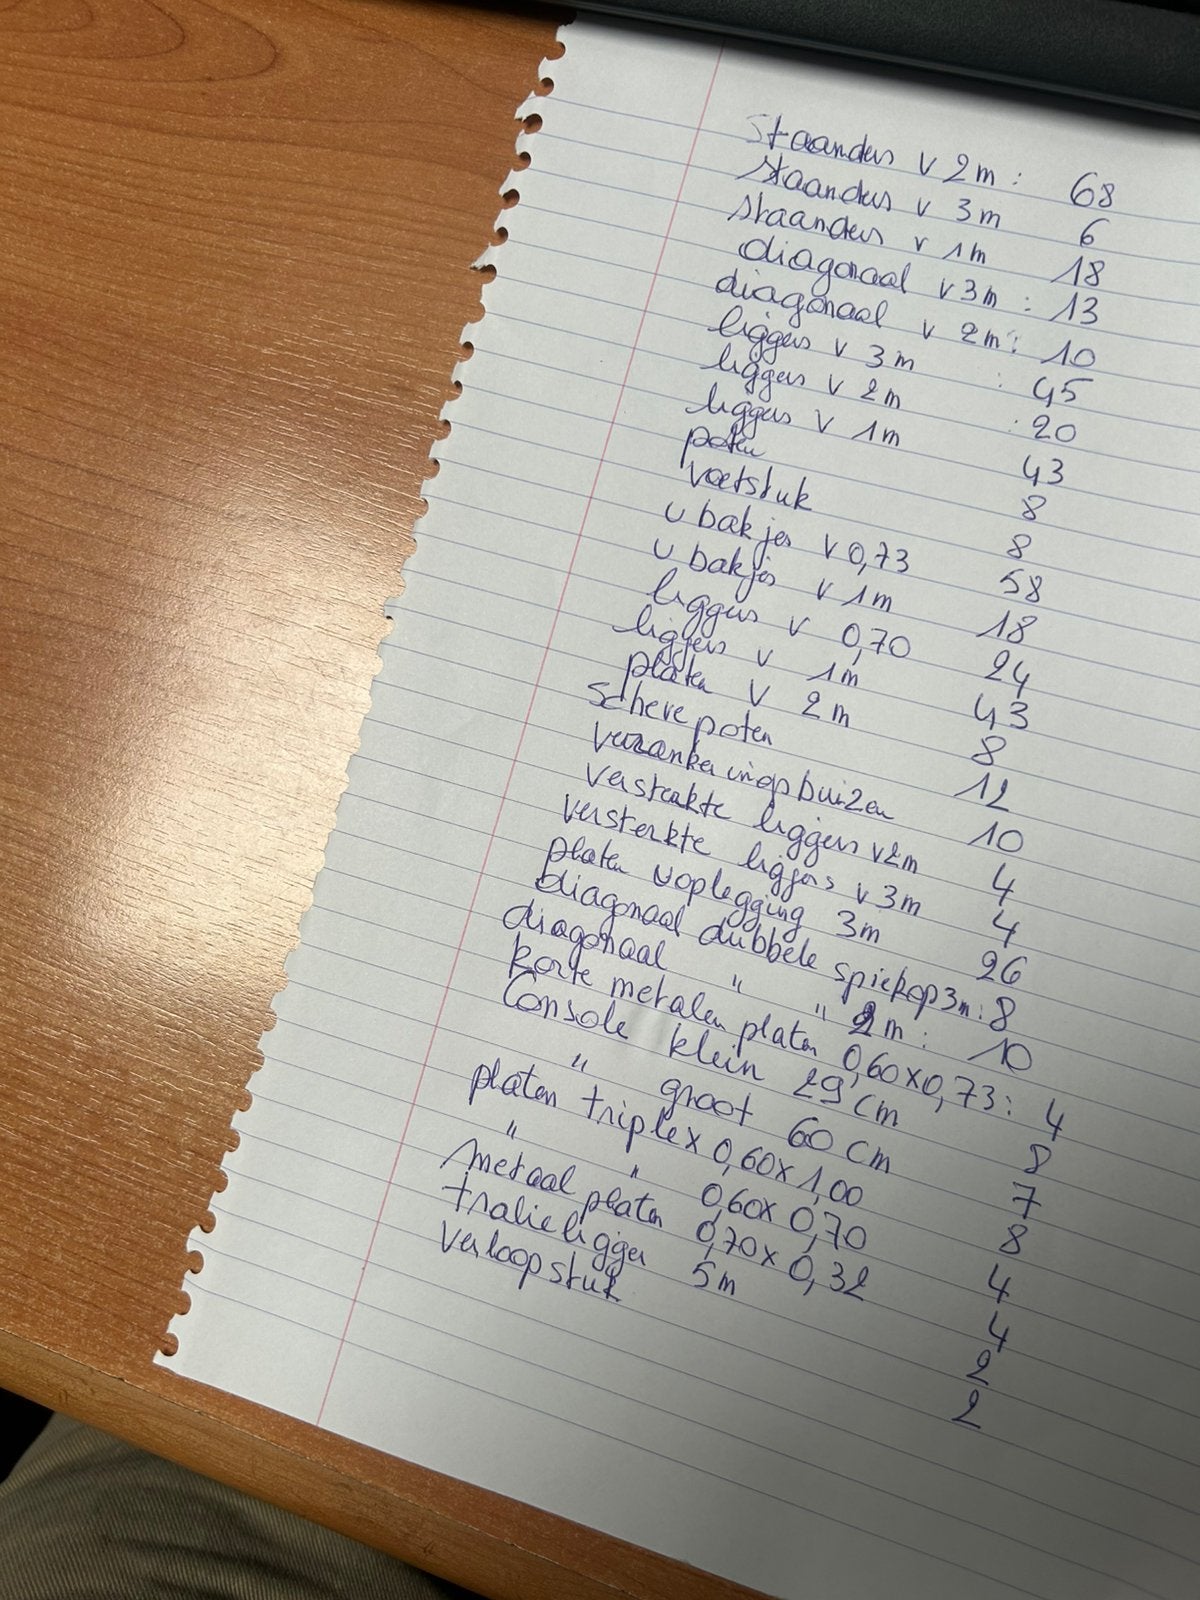 Staanders v 2m : 68
staanders v 3m 6
staanders v 1m 18
diagonaal v 3m : 13
diagonaal v 2m : 10
liggers v 3m : 45
liggers v 2m : 20
liggers v 1m 43
poten 8
voetstuk 8
u bakjes v 0,73 58
u bakjes v 1m 18
liggers v 0,70 24
liggers v 1m 43
platen v 2m 8
Scheve poten 12
verankeringsbuizen 10
versterkte liggers v 2m 4
versterkte liggers v 3m 4
platen u oplegging 3m 26
diagonaal dubbele spiekop 3m : 8
diagonaal " " 2m : 10
korte metalen platen 0,60 x 0,73 : 4
Console klein 29 cm 8
" groot 60 cm 7
platen triplex 0,60 x 1,00 8
" " 0,60 x 0,70 4
metaal platen 0,70 x 0,32 4
tralieligger 5m 2
verloopstuk 2